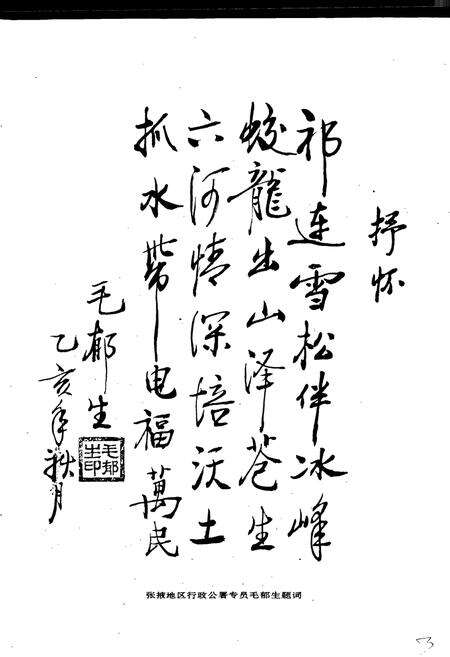 抒怀
祁连雪松伴冰峰
蛟龍出山泽苍生
六河情深培沃土
抓水带电福萬民
毛郁生
乙亥年秋月
毛郁生印
张掖地区行政公署专员毛郁生题词
3